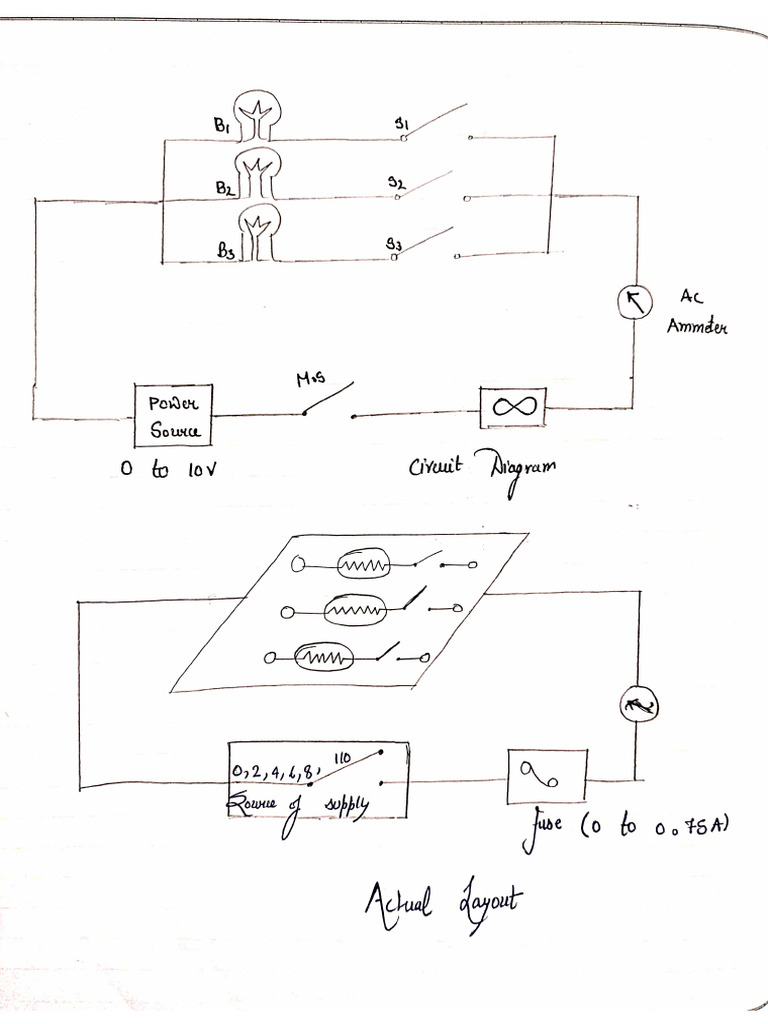 B1
S1
B2
S2
B3
S3
AC
Ammeter
M.S
Power
Source
0 to 10V
Circuit Diagram
110
0, 2, 4, 6, 8,
Source of supply
fuse (0 to 0.75A)
Actual Layout